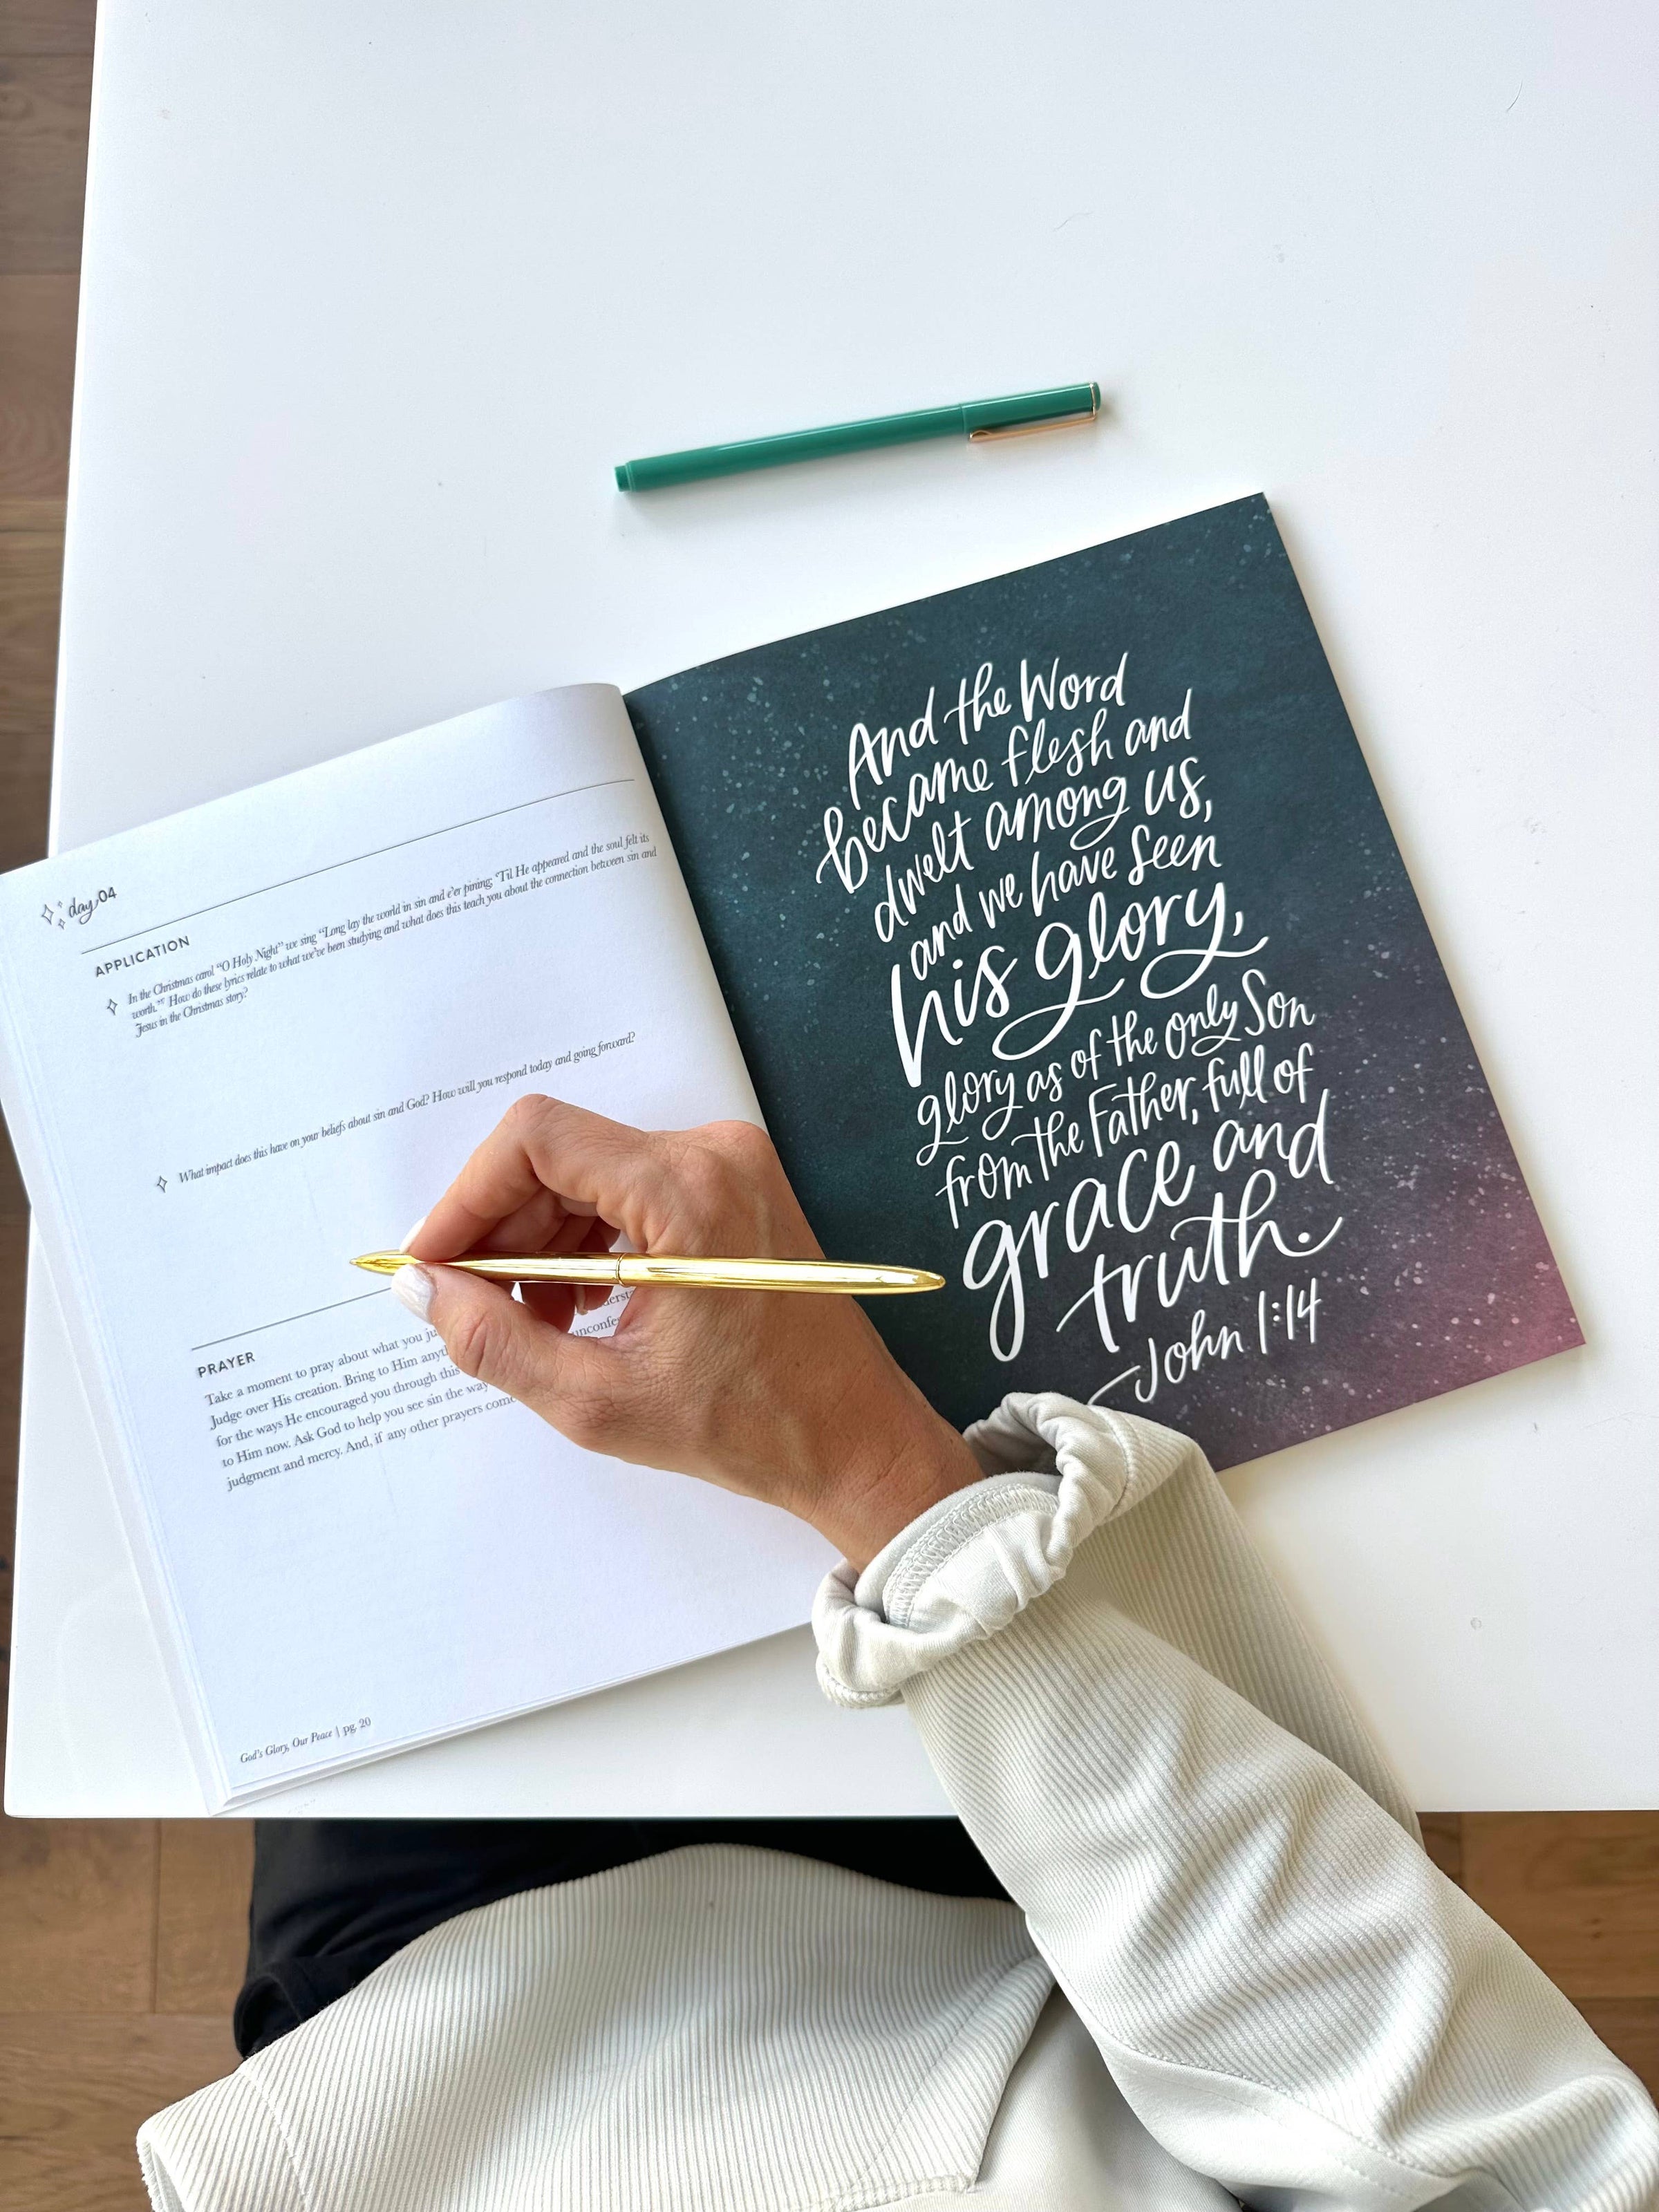 day 04
APPLICATION
In the Christmas carol “O Holy Night” we sing “Long lay the world in sin and e’er pining; ‘Til He appeared and the soul felt its
worth.” How do these lyrics relate to what we’ve been studying and what does this teach you about the connection between sin and
Jesus in the Christmas story?
What impact does this have on your beliefs about sin and God? How will you respond today and going forward?
PRAYER
Take a moment to pray about what you
Judge over His creation. Bring to Him
for the ways He encouraged you through this
to Him now. Ask God to help you see sin the way
judgment and mercy. And, if any other prayers come
God’s Glory, Our Peace | pg. 20
And the Word
became flesh and
dwelt among us,
and we have seen
his glory,
glory as of the only Son
from the Father, full of
grace and
truth.
—John 1:14